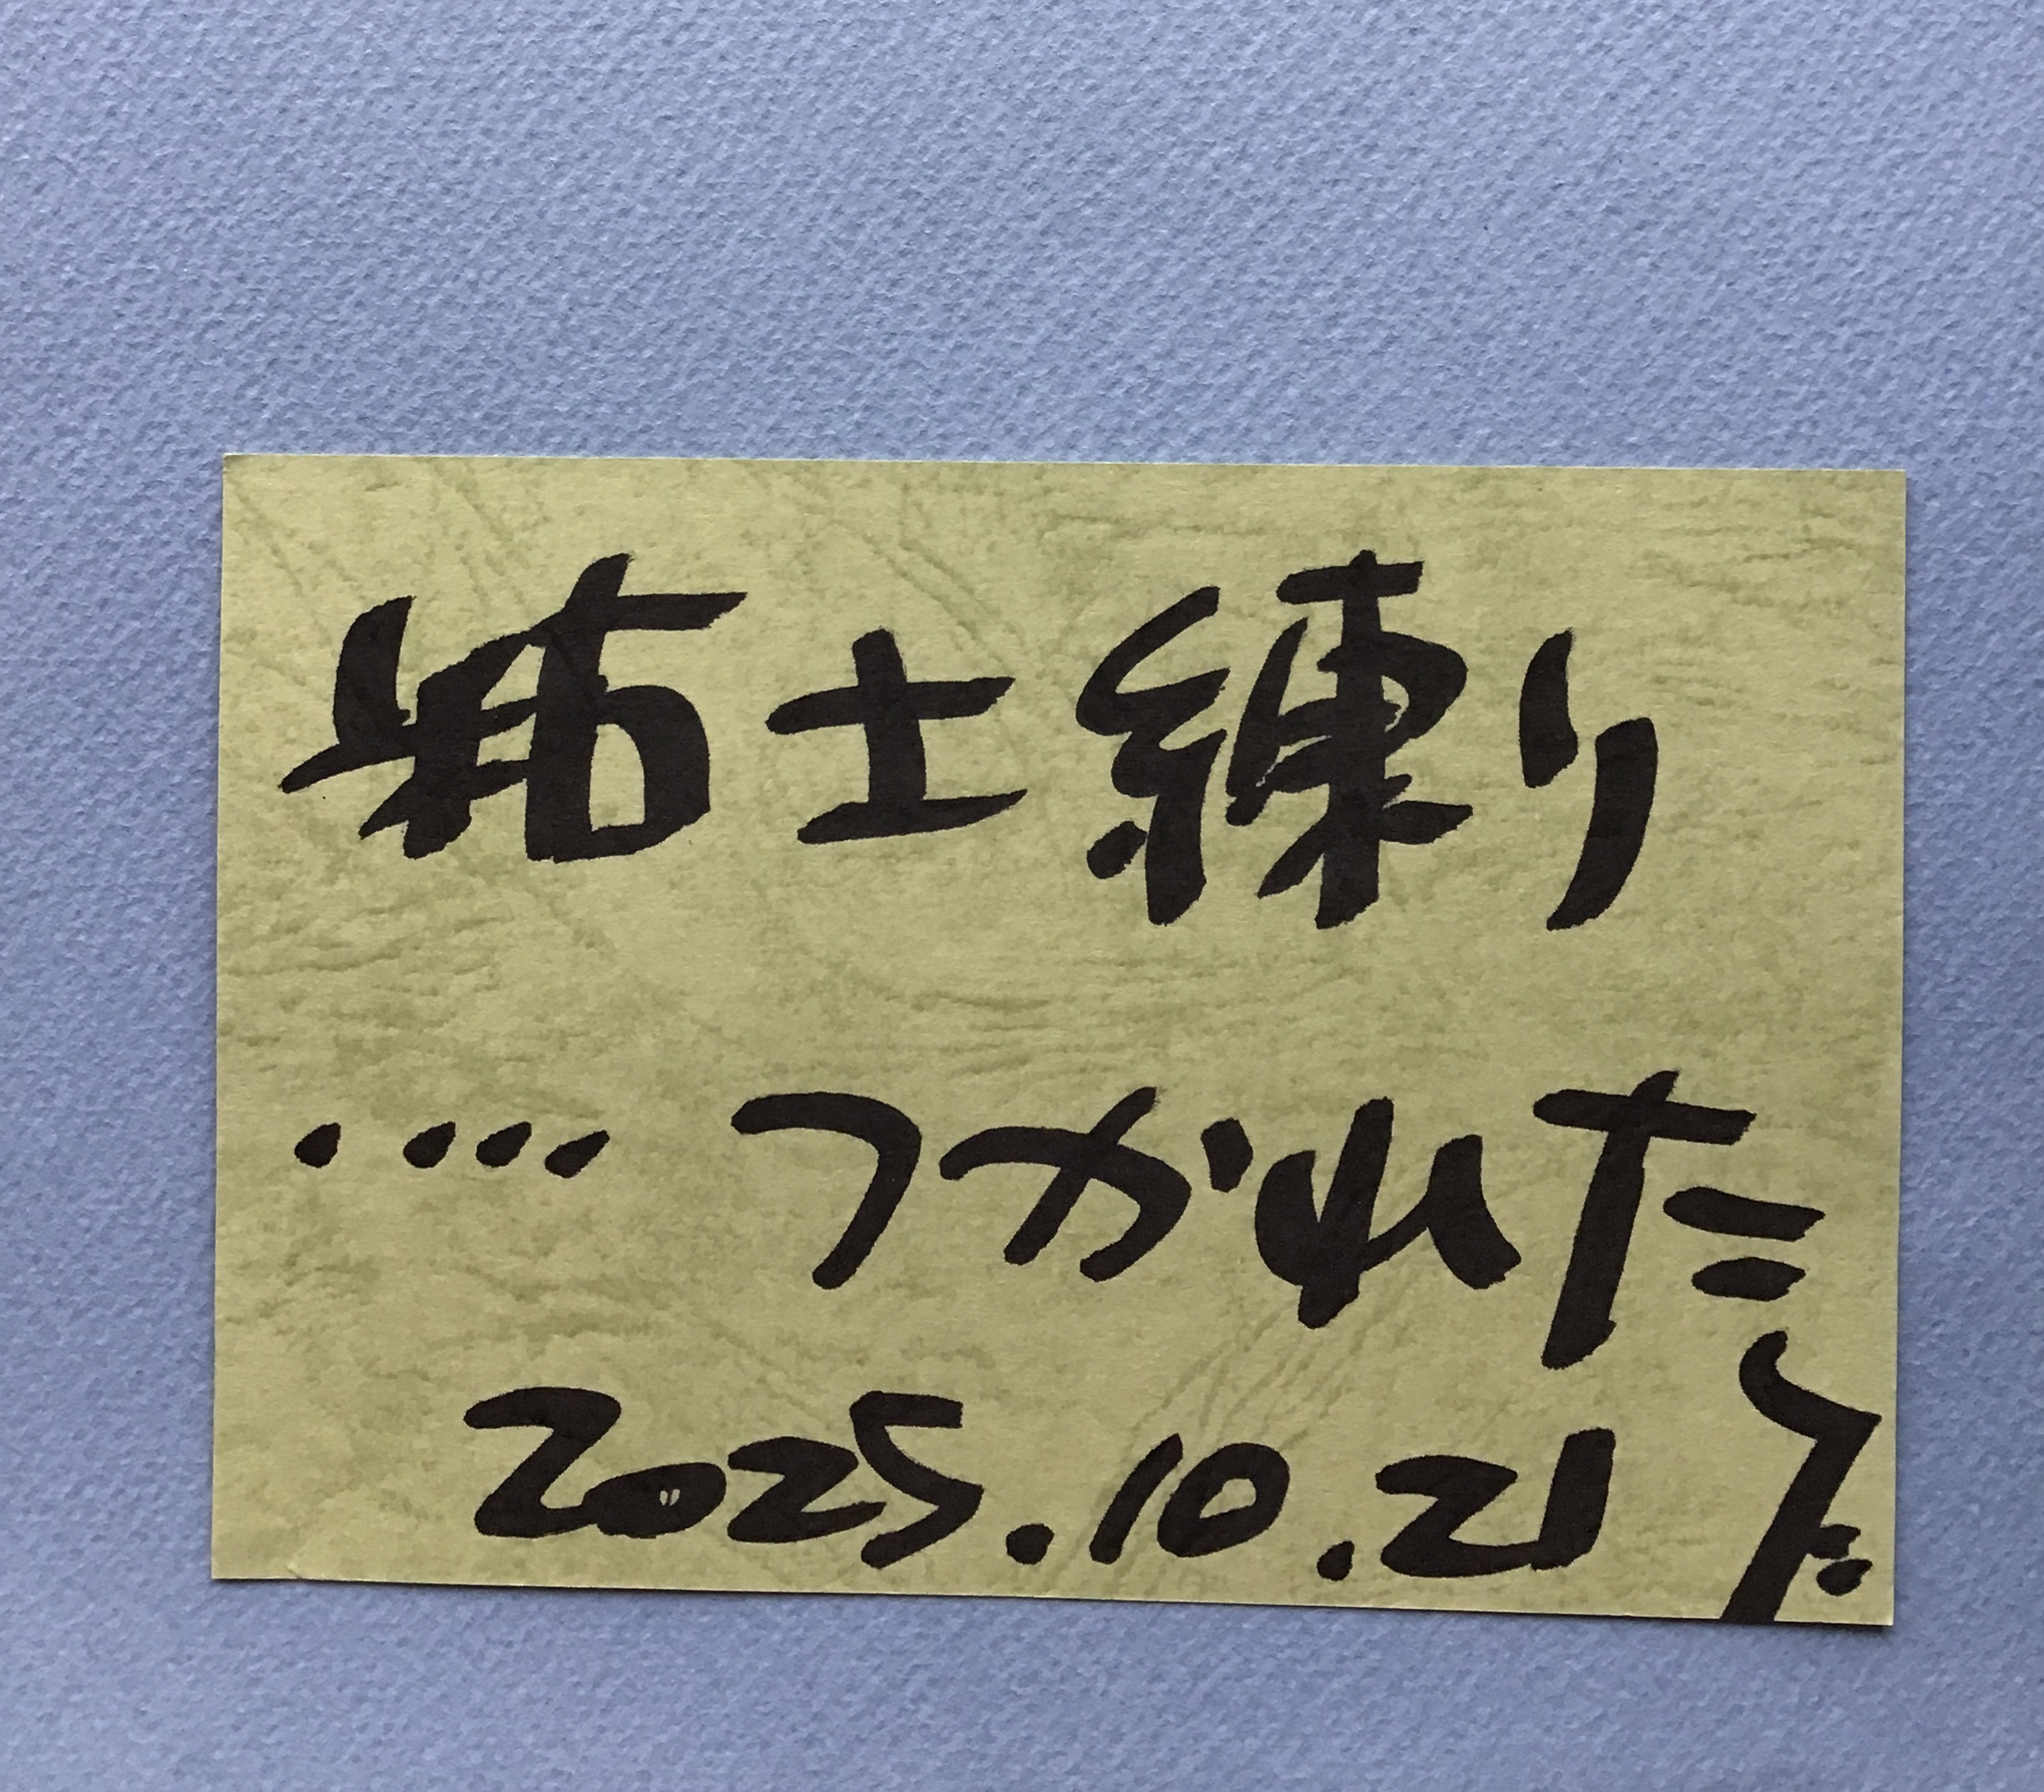 粘土練り
・・・・つかれた
2025.10.21